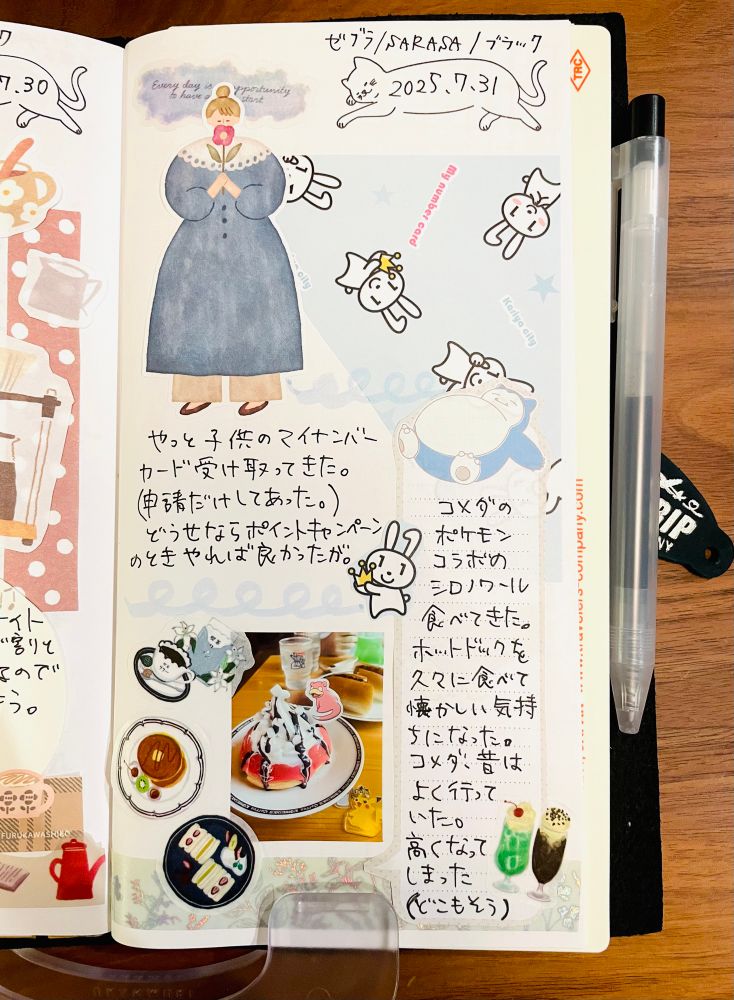 7.30
ゼブラ/SARASA/ブラック
2025.7.31
TRC
Every day is opportunity
to have a start
My number card
Kariya city
やっと子供のマイナンバー
カード受け取ってきた。
(申請だけしてあった。)
どうせならポイントキャンペーン
のときやれば良かったが。
コメダの
ポケモン
コラボの
シロノワール
食べてきた。
ホットドックを
久々に食べて
懐かしい気持
ちになった。
コメダ、昔は
よく行って
いた。
高くなって
しまった
(どこもそう)
イト
割りと
るので
う。
FURUKAWASHIKO